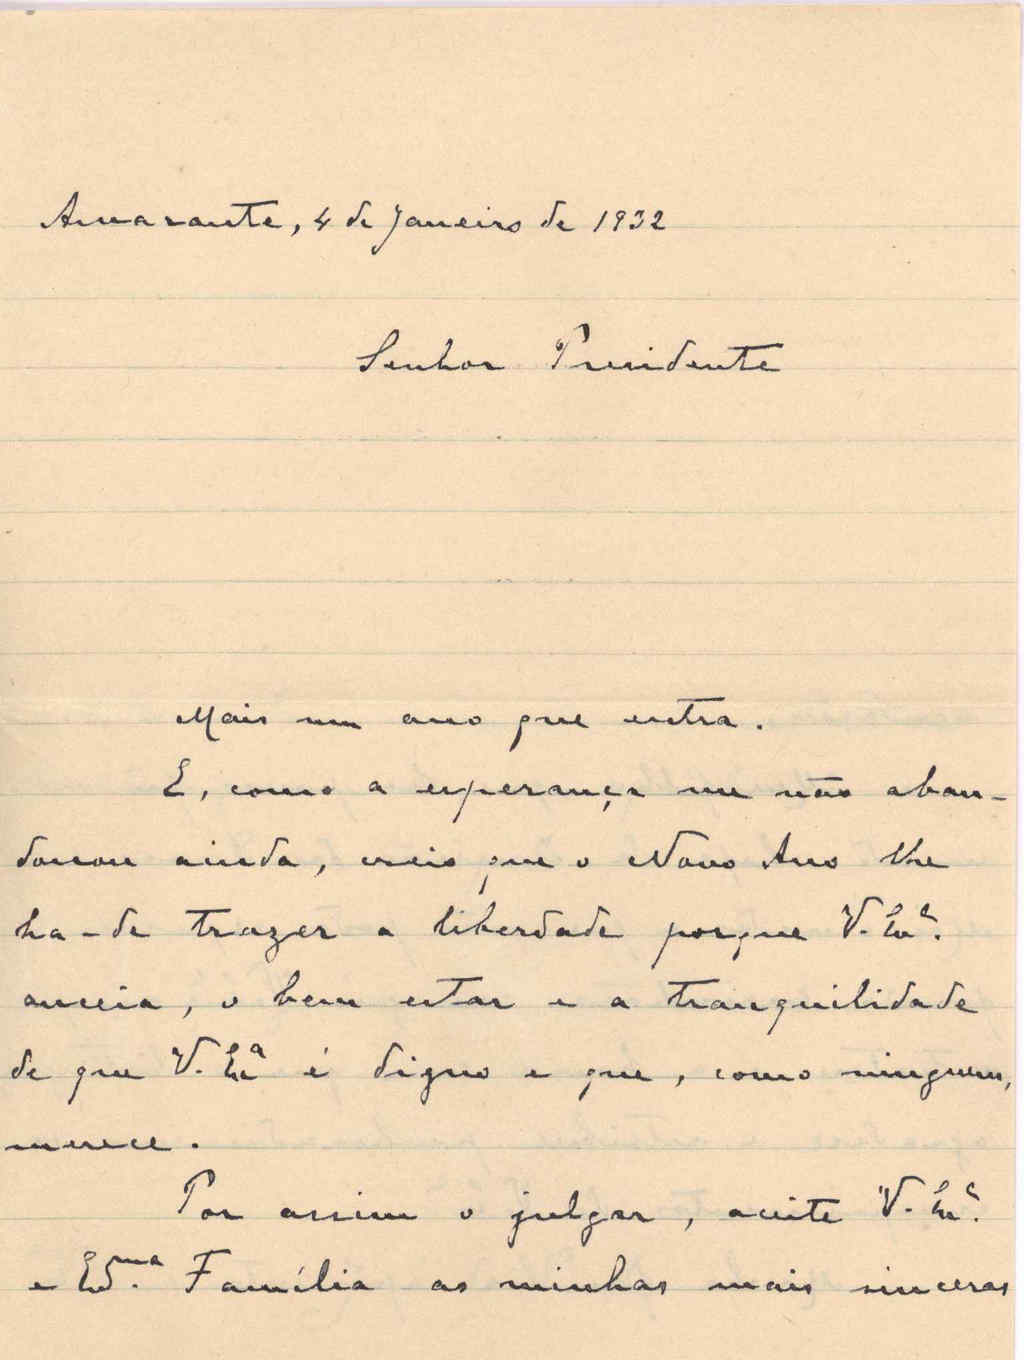 Amarante, 4 de Janeiro de 1932
Senhor Presidente
Mais um ano que entra.
E, como a esperança me não aban-
donou ainda, creio que o Novo Ano lhe
ha-de trazer a liberdade porque V. Ex.ª
anceia, o bem estar e a tranquilidade
de que V. Ex.ª é digno e que, como ninguem,
merece.
Por assim o julgar, aceite V. Ex.ª
e Ex.ma Família as minhas mais sinceras